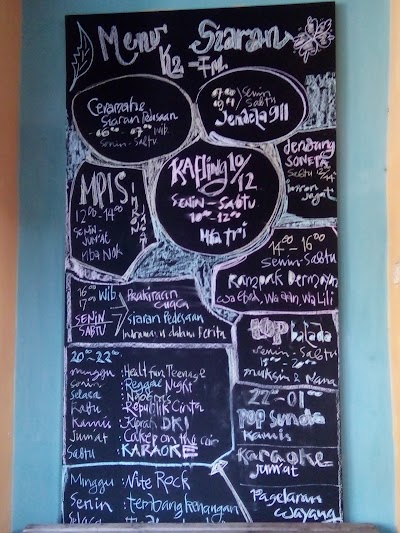 Menu Siaran
K2-FM
Ceramahe
Siaran Pedesaan
06.00 - 07.00 WIB
Senin - Sabtu
Senin
Sabtu
Jendela 911
KAFling 10/12
SENIN - SABTU
10.00 - 12.00
Mba tri
MPIS
12.00 - 14.00
SENIN -
JUMAT
Mba Nok
dendang
SONETA
Sabtu
14.00 - 16.00
Senin - Sabtu
Rampak Bermayu
wa Ebod, Wa Udin, Wa Lili
16.00 WIB
17.00
SENIN
SABTU
Prakiraan
cuaca
Siaran Pedesaan
Indramayu dalam Berita
TOP balada
Senin - Sabtu
20.00
muksin & Nana
20.00 - 22.00
minggu : Healt fun Teenage
Senin : Reggae Night
Selasa
Rabu : Republik Cinta
Kamis : Kiprah DKI
Jumat : Cakep on the air
Sabtu : KARAOKE
22.00 - 01.00
POP Sunda
Kamis
Karaoke
Jumat
Pagelaran
Wayang
Minggu : Nite Rock
Senin : Tembang kenangan
Selasa